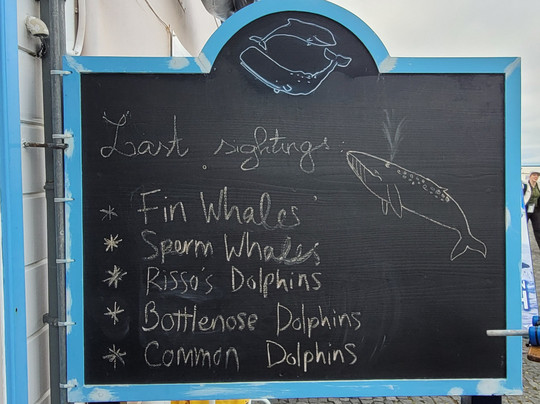 Last sightings:
* Fin Whales
* Sperm Whales
* Risso's Dolphins
* Bottlenose Dolphins
* Common Dolphins